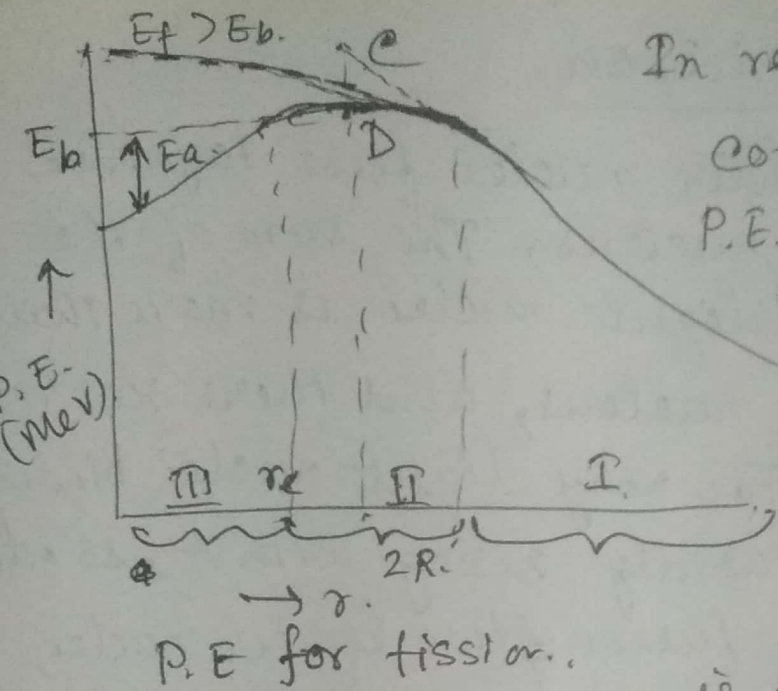 Ef > Eb.
C
In re
Eb
Ea
D
Co
P.E.
P.E.
(MeV)
III
rc
II
I.
2R.
→ r.
P.E for fission.